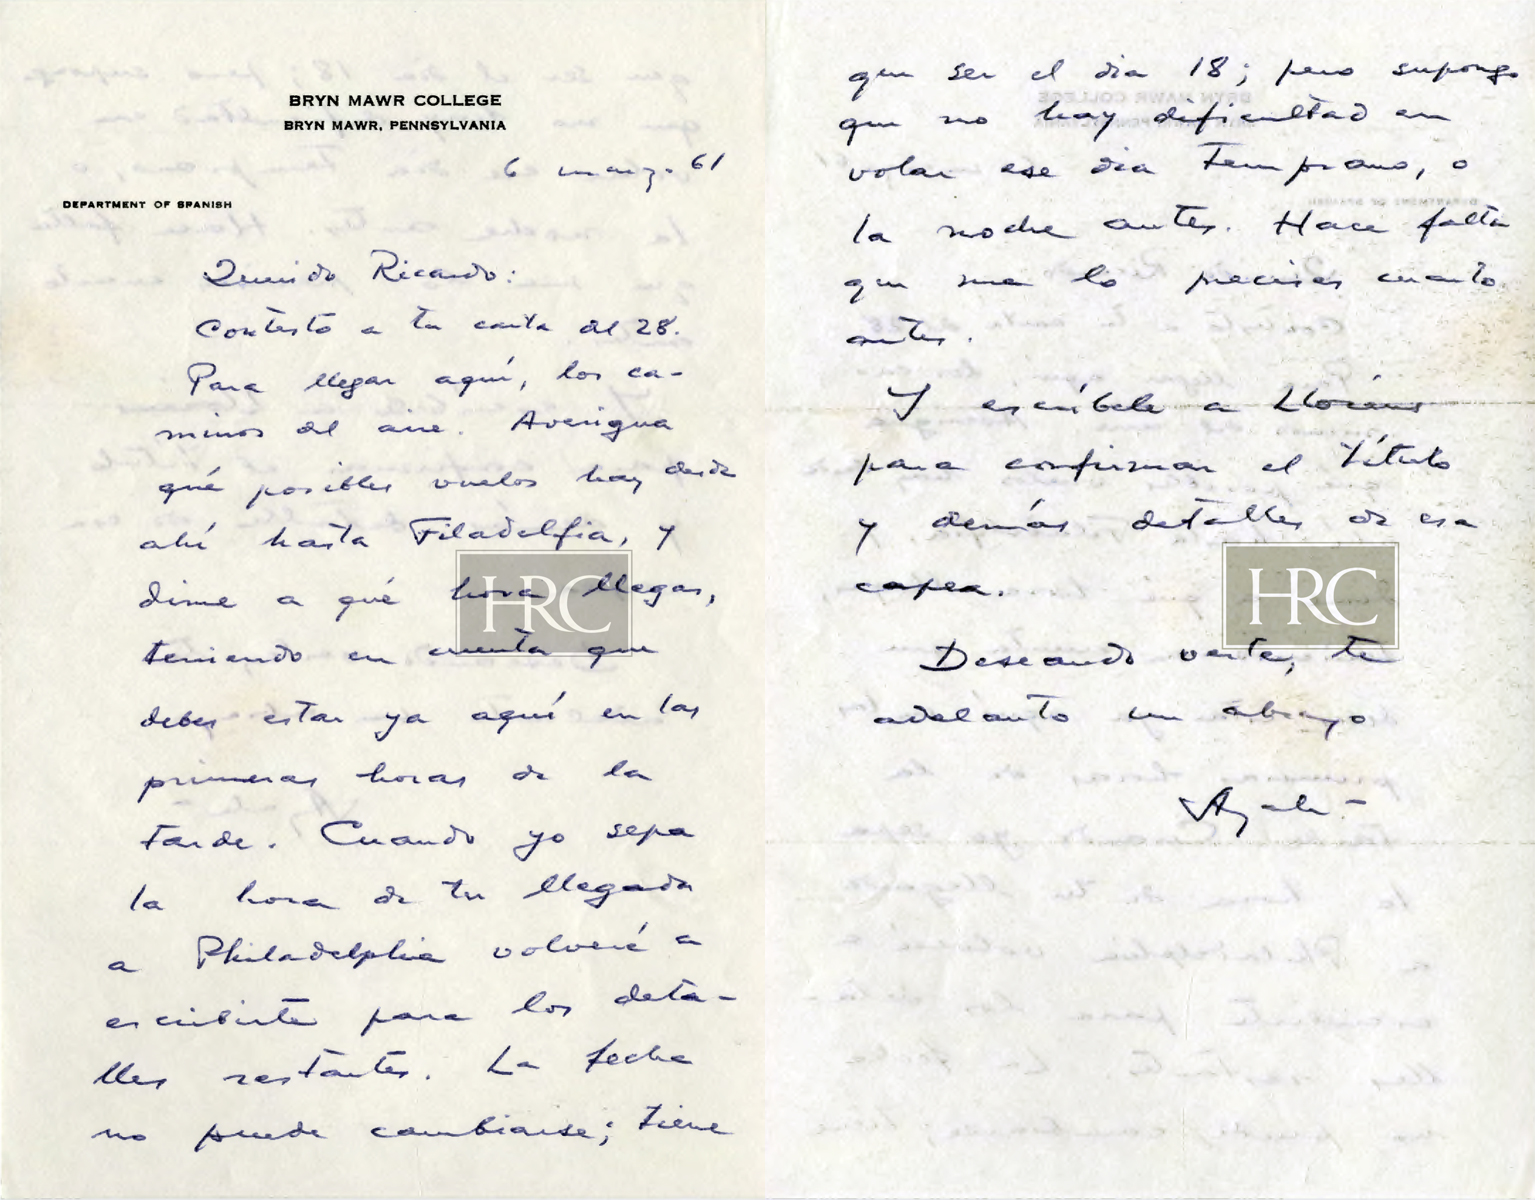 BRYN MAWR COLLEGE
BRYN MAWR, PENNSYLVANIA
6 marzo 61
DEPARTMENT OF SPANISH
Querido Ricardo:
Contesto a tu carta del 28.
Para llegar aquí, los ca-
minos del aire. Averigua
qué posibles vuelos hay desde
ahí hasta Filadelfia, y
dime a qué hora llegas,
teniendo en cuenta que
debes estar ya aquí en las
primeras horas de la
tarde. Cuando yo sepa
la hora de tu llegada
a Philadelphia volveré a
escribirte para los deta-
lles restantes. La fecha
no puede cambiarse; tiene
que ser el dia 18; pero supongo
que no hay dificultad en
volar ese dia temprano, o
la noche antes. Hace falta
que me lo precises cuanto
antes.
Y escríbele a Lloréns
para confirmar el título
y demás detalles de esa
capea.
Deseando verte, te
adelanto un abrazo
Ayala
HRC
HRC